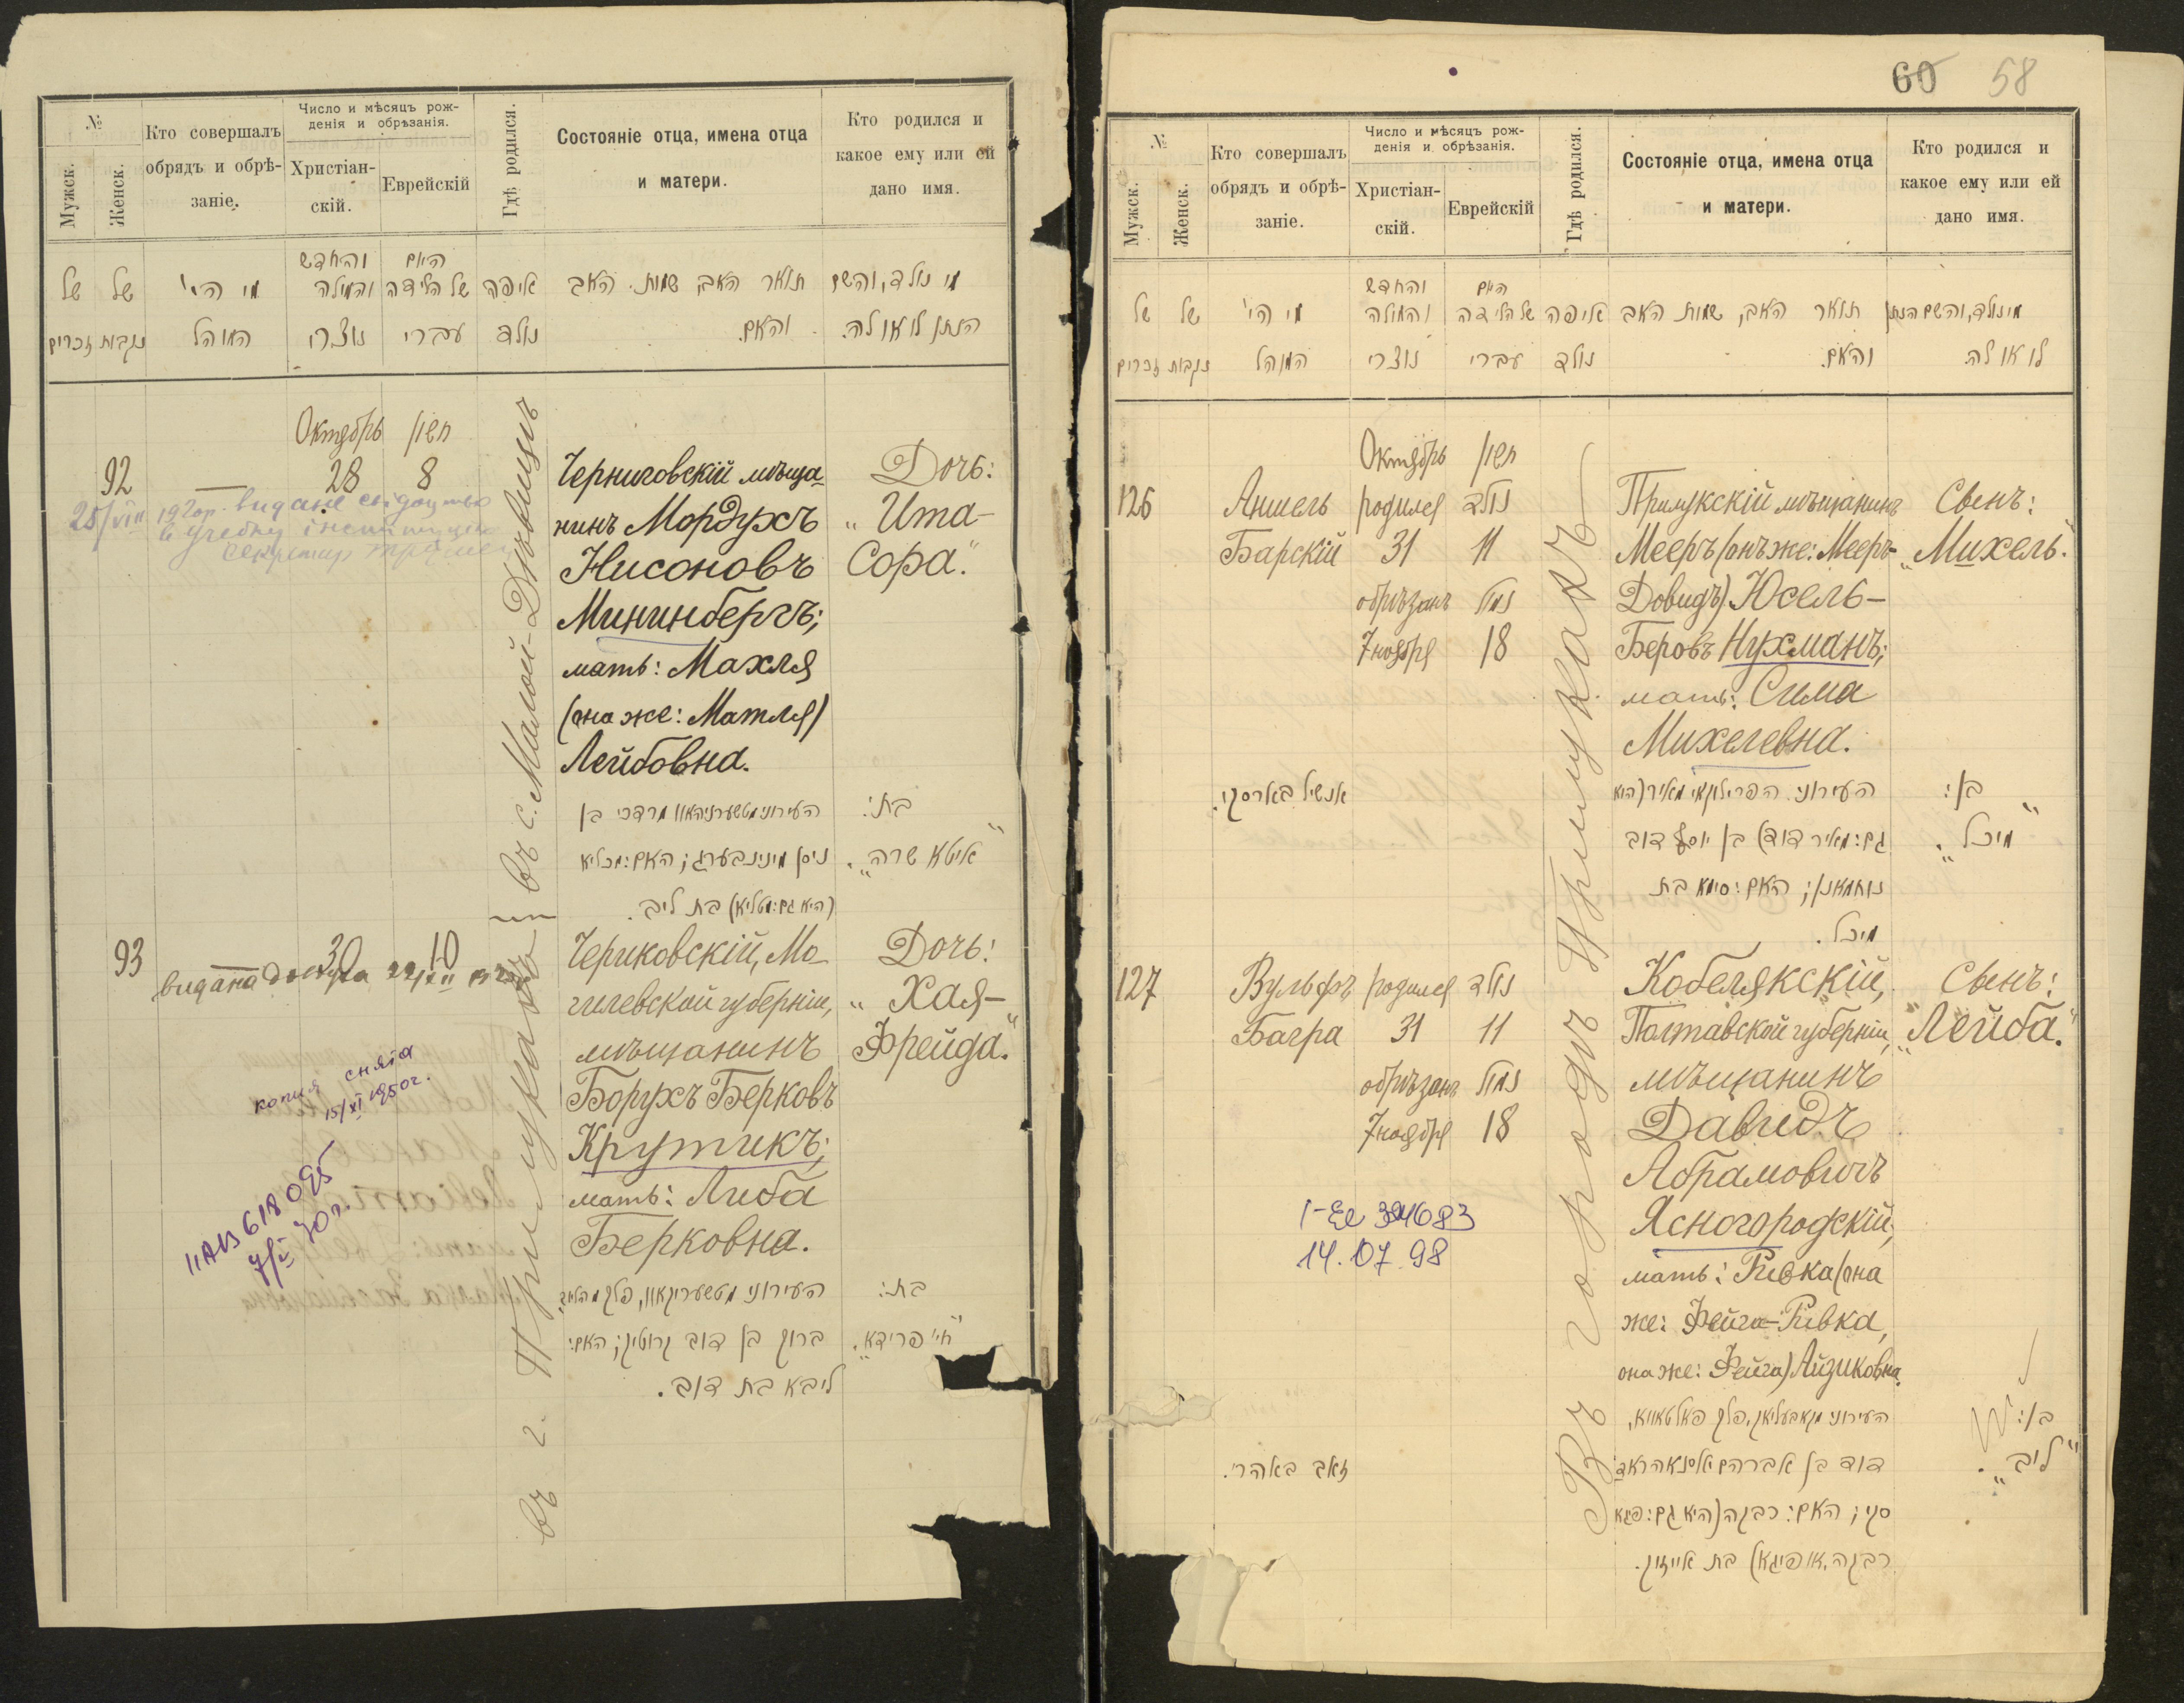 №
Мужск.
Женск.
Кто совершалъ
обрядъ и обрѣ-
заніе.
Число и мѣсяцъ рож-
денія и обрѣзанія.
Христіан-
скій.
Еврейскій
Гдѣ родился.
Состояніе отца, имена отца
и матери.
Кто родился и
какое ему или ей
дано имя.
של זכרים
של נקבות
מי הי'
המוהל
היום והחדש
של הלידה והמילה
נוצרי
עברי
איפה
נולד
תואר האב, שמות האב
והאם.
מי נולד, והשם
הנתן לו או לה.
Октябрь חשון
92 — 28 8
25/VIII 192 видане
секретар
въ с. Малой-Дѣвицѣ
Черниговскій мѣща-
нинъ Мордухъ
Нисоновъ
Мининбергъ;
мать: Махля
(она же: Матля)
Лейбовна.
Дочь:
„Ита-
Сора."
העירוני מטשערניהאוו מרדכי בן
ניסן מינינבערג; האם: מכליא
(היא גם: מטליא) בת ליב.
בת:
"איטא שרה".
93 — 30 10
видана
въ г. Прилукахъ
Чериковскій, Мо-
гилевской губерніи,
мѣщанинъ
Борухъ Берковъ
Крутикъ;
мать: Либа
Берковна.
Дочь:
„Хая-
Фрейда."
копия снята
15/XI 1950г.
618095
70г.
העירוני מטשעריקאוו, פלך מהליב,
ברוך בן דוב קרוטיק; האם:
ליבא בת דוב.
בת:
"חי' פרידא".
60 58
№
Мужск.
Женск.
Кто совершалъ
обрядъ и обрѣ-
заніе.
Число и мѣсяцъ рож-
денія и обрѣзанія.
Христіан-
скій.
Еврейскій
Гдѣ родился.
Состояніе отца, имена отца
и матери.
Кто родился и
какое ему или ей
дано имя.
של זכרים
של נקבות
מי הי'
המוהל
היום והחדש
של הלידה והמולה
נוצרי
עברי
איפה
נולד
תואר האב, שמות האב
והאם.
מי נולד, והשם הנתן
לו או לה.
Октябрь חשון
126
Аншель
Барскій
родился נולד
31 11
обрѣзанъ נמול
7 ноября 18
Въ городѣ Прилукахъ
Прилукскій мѣщанинъ
Мееръ (онъ же: Мееръ-
Довидъ) Юсель-
Беровъ Нухманъ;
мать: Сима
Михелевна.
Сынъ:
„Михель."
אנשיל בארסקי.
העירוני הפרילוקאי מאיר (הוא
גם: מאיר דוד) בן יוסף דוב
נוחמאן; האם: סימא בת
מיכל.
בן:
"מיכל".
127
Вульфъ
Багра
родился נולד
31 11
обрѣзанъ נמול
7 ноября 18
Кобелякскій,
Полтавской губерніи,
мѣщанинъ
Давидъ
Абрамовичъ
Ясногородскій,
мать: Ривка (она
же: Фейга-Ривка,
она же: Фейга) Айзиковна.
Сынъ:
„Лейба."
14.07.98
זאב באהרי.
העירוני מקאבעליאק, פלך פאלטאווא,
דוד בן אברהם יאסנאהראד-
סקי; האם: רבקה (היא גם: פיגא
רבקה, או פיגא) בת אייזיק.
בן:
"ליב".